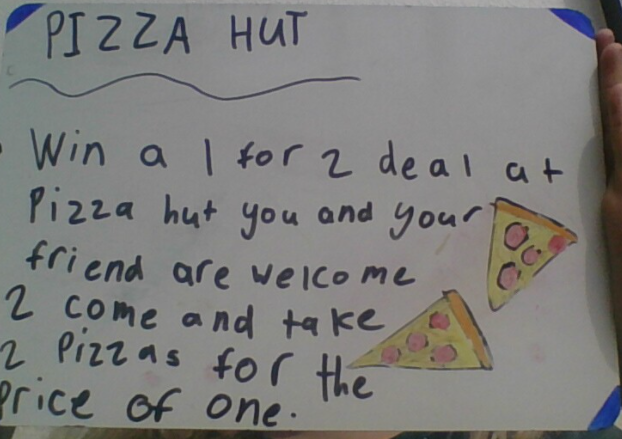 PIZZA HUT
Win a 1 for 2 deal at
Pizza hut you and your
friend are welcome
2 come and take
2 Pizzas for the
Price of one.